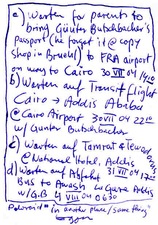 a) Warten for parent to
bring Günter Butschbacher's
Passport (he forget it @ copy
shop in Bruehl) to FRA airport
on way to Cairo 30 VII 04 1410
b) Warten auf Transit flight
Cairo → Addis Abiba
@ Cairo Airport 30 VII 04 22
w/ Günter Butschbacher
c) Warten auf Tamrat & Tewodros
@ National Hotel, Addis
31 VII 04 1725
d) Warten auf Abfahrt
Bus to Awash w/ Guests Addis
w/ G.B. 1 VIII 04 0630
Polaroid "in another place / same thing"